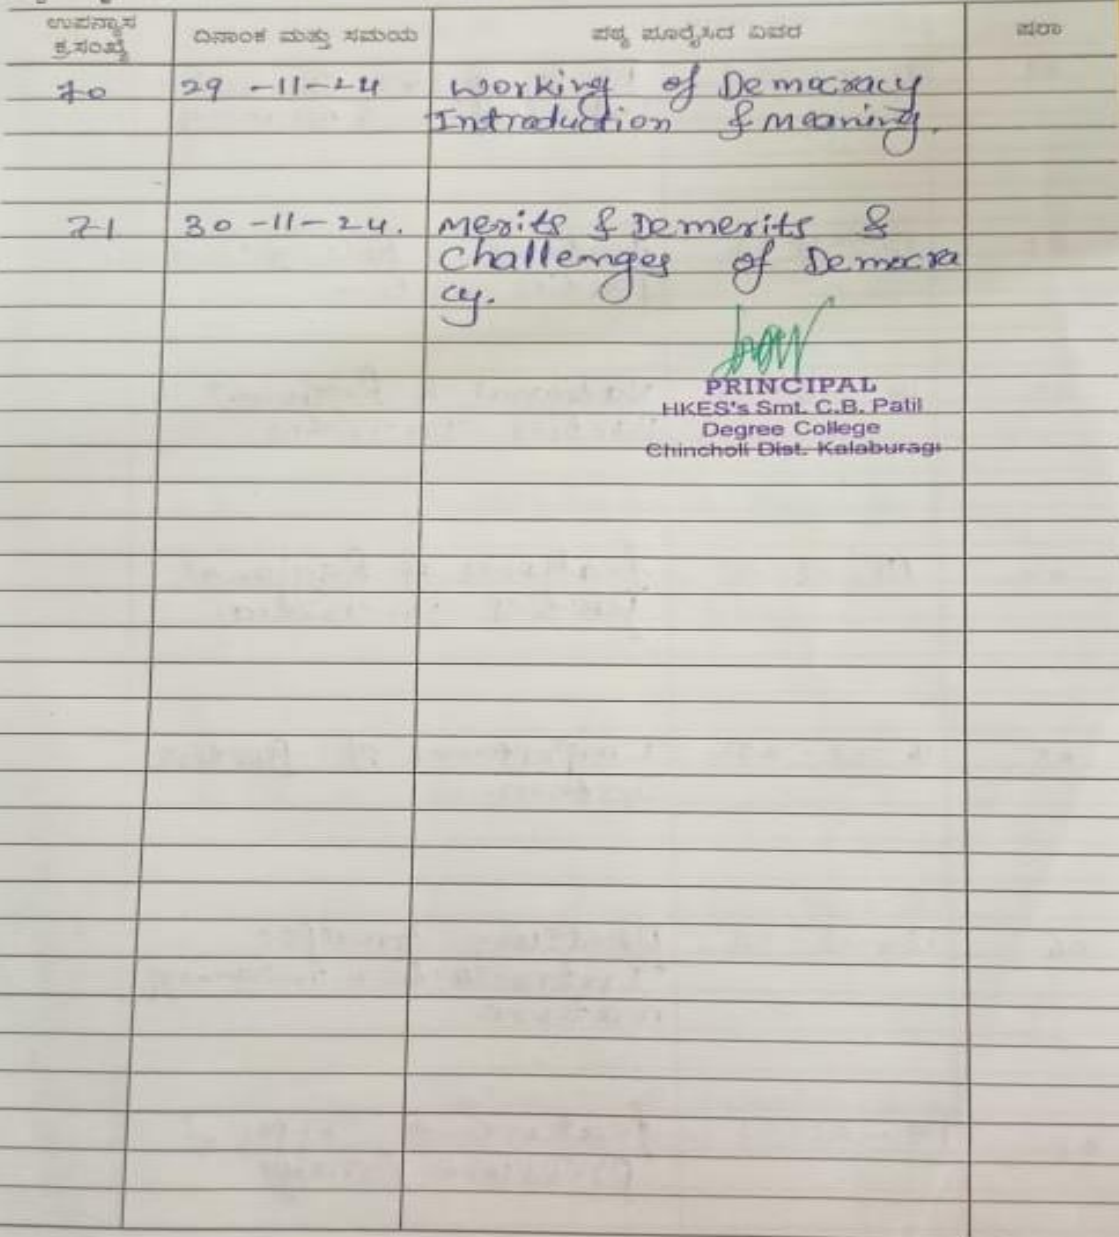 ಉಪನ್ಯಾಸ
ಕ್ರ.ಸಂಖ್ಯೆ
ದಿನಾಂಕ ಮತ್ತು ಸಮಯ
ಪಠ್ಯ ಪೂರೈಸಿದ ವಿವರ
ಷರಾ
70 29-11-24 Working of Democracy
Introduction & meaning.
71 30-11-24. Merits & Demerits &
Challenges of Democra
cy.
PRINCIPAL
HKES's Smt. C.B. Patil
Degree College
Chincholi Dist. Kalaburagi